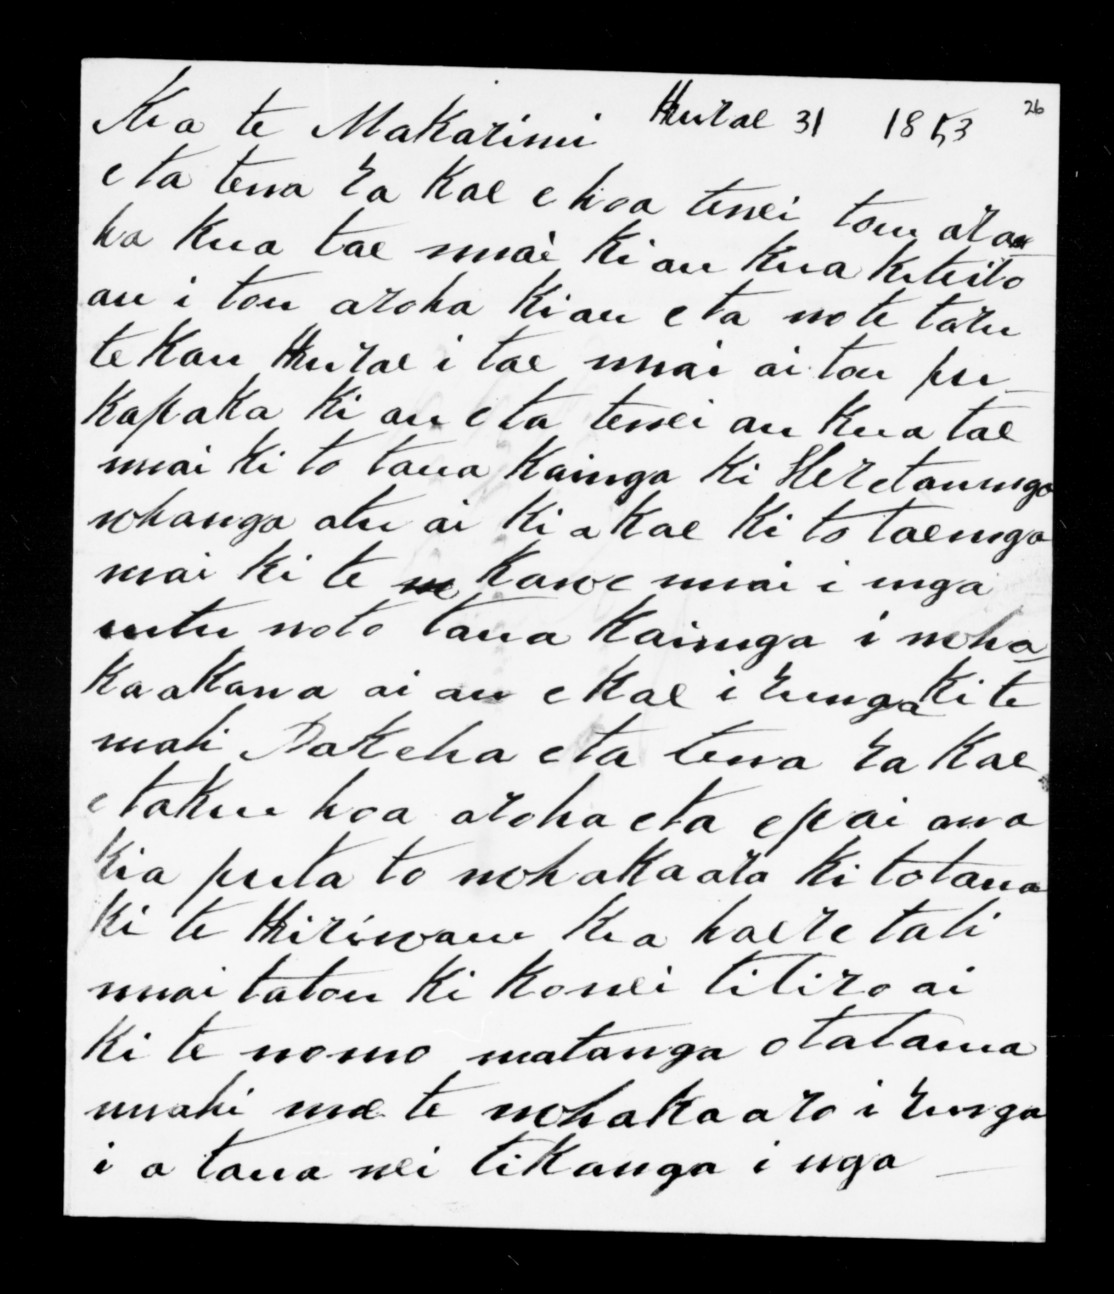 26
Hurae 31 1853
Kia te Makarini
e ta tena ra koe e hoa tenei tou aro
ha kua tae mai ki au kua kiteito
au i tou aroha ki au e ta no te toru
tekau Hurae i tae mai ai tou pu
kapuka ki au e ta tenei au kua tae
mai ki to taua kainga ki Heretaunga
whanga atu ai ki a koe ki to taenga
mai ki te kawe mai i nga
utu noto taua kainga i wha
kaakona ai au e koe i runga ki te
mahi Pakeha e ta tena ra koe
e taku hoa aroha e ta e pai ana
kia puta to whakaaro ki to taua
ki te Hiriwanu kia haere tahi
mai tatou ki konei titiro ai
ki te nomo matanga o tataua
mahi me te whakaaro i runga
i a taua nei tikanga i nga